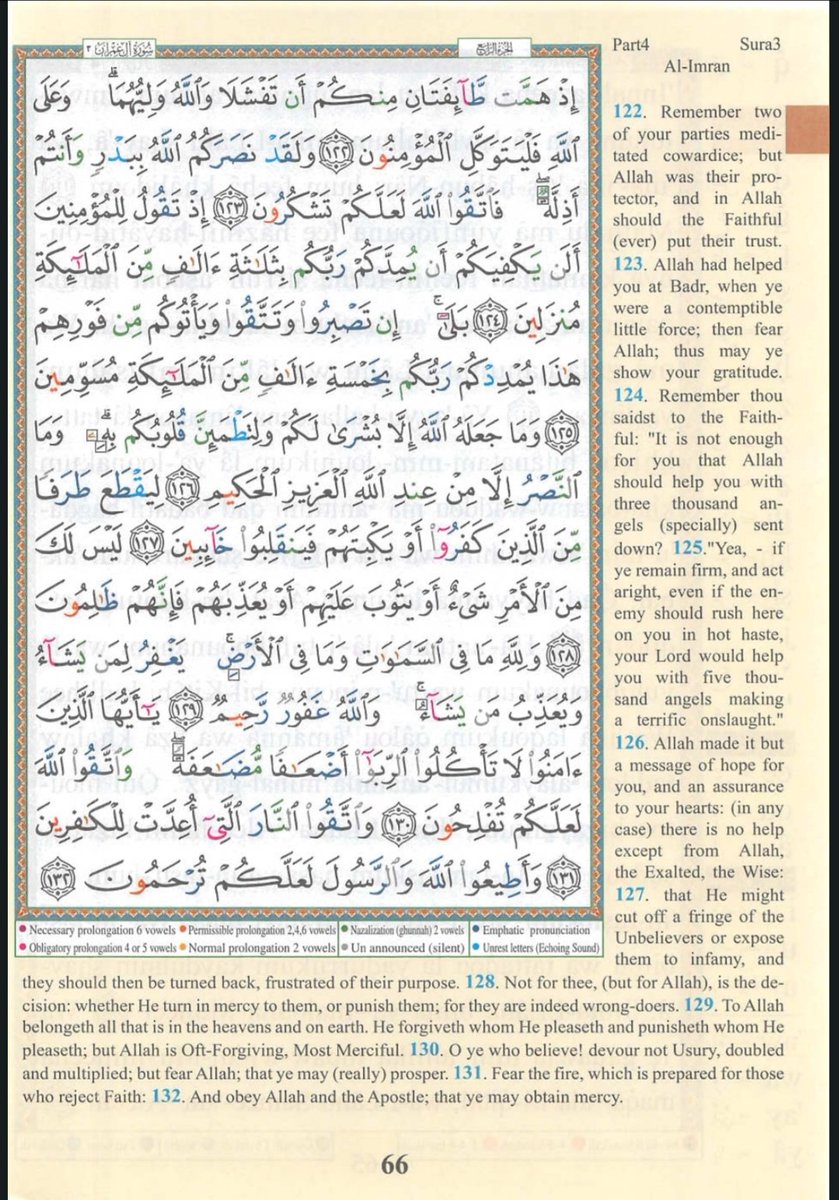 سُورَةُ آلِ عِمْرَان ٣
الجزء الرابع
Part4 Sura3
Al-Imran
إِذْ هَمَّت طَّآئِفَتَانِ مِنكُمْ أَن تَفْشَلَا وَٱللَّهُ وَلِيُّهُمَا ۗ وَعَلَى
ٱللَّهِ فَلْيَتَوَكَّلِ ٱلْمُؤْمِنُونَ ١٢٢ وَلَقَدْ نَصَرَكُمُ ٱللَّهُ بِبَدْرٍ وَأَنتُمْ
أَذِلَّةٌ ۖ فَٱتَّقُوا۟ ٱللَّهَ لَعَلَّكُمْ تَشْكُرُونَ ١٢٣ إِذْ تَقُولُ لِلْمُؤْمِنِينَ
أَلَن يَكْفِيَكُمْ أَن يُمِدَّكُمْ رَبُّكُم بِثَلَـٰثَةِ ءَالَـٰفٍ مِّنَ ٱلْمَلَـٰٓئِكَةِ
مُنزَلِينَ ١٢٤ بَلَىٰٓ ۚ إِن تَصْبِرُوا۟ وَتَتَّقُوا۟ وَيَأْتُوكُم مِّن فَوْرِهِمْ
هَـٰذَا يُمْدِدْكُمْ رَبُّكُم بِخَمْسَةِ ءَالَـٰفٍ مِّنَ ٱلْمَلَـٰٓئِكَةِ مُسَوِّمِينَ
١٢٥ وَمَا جَعَلَهُ ٱللَّهُ إِلَّا بُشْرَىٰ لَكُمْ وَلِتَطْمَئِنَّ قُلُوبُكُم بِهِۦ ۗ وَمَا
ٱلنَّصْرُ إِلَّا مِنْ عِندِ ٱللَّهِ ٱلْعَزِيزِ ٱلْحَكِيمِ ١٢٦ لِيَقْطَعَ طَرَفًا
مِّنَ ٱلَّذِينَ كَفَرُوٓا۟ أَوْ يَكْبِتَهُمْ فَيَنقَلِبُوا۟ خَآئِبِينَ ١٢٧ لَيْسَ لَكَ
مِنَ ٱلْأَمْرِ شَىْءٌ أَوْ يَتُوبَ عَلَيْهِمْ أَوْ يُعَذِّبَهُمْ فَإِنَّهُمْ ظَـٰلِمُونَ
١٢٨ وَلِلَّهِ مَا فِى ٱلسَّمَـٰوَٰتِ وَمَا فِى ٱلْأَرْضِ ۚ يَغْفِرُ لِمَن يَشَآءُ
وَيُعَذِّبُ مَن يَشَآءُ ۚ وَٱللَّهُ غَفُورٌ رَّحِيمٌ ١٢٩ يَـٰٓأَيُّهَا ٱلَّذِينَ
ءَامَنُوا۟ لَا تَأْكُلُوا۟ ٱلرِّبَوٰٓا۟ أَضْعَـٰفًا مُّضَـٰعَفَةً ۖ وَٱتَّقُوا۟ ٱللَّهَ
لَعَلَّكُمْ تُفْلِحُونَ ١٣٠ وَٱتَّقُوا۟ ٱلنَّارَ ٱلَّتِىٓ أُعِدَّتْ لِلْكَـٰفِرِينَ
١٣١ وَأَطِيعُوا۟ ٱللَّهَ وَٱلرَّسُولَ لَعَلَّكُمْ تُرْحَمُونَ ١٣٢
Necessary prolongation 6 vowels Permissible prolongation 2,4,6 vowels Nazalization (ghunnah) 2 vowels Emphatic pronunciation
Obligatory prolongation 4 or 5 vowels Normal prolongation 2 vowels Un announced (silent) Unrest letters (Echoing Sound)
122. Remember two
of your parties medi-
tated cowardice; but
Allah was their pro-
tector, and in Allah
should the Faithful
(ever) put their trust.
123. Allah had helped
you at Badr, when ye
were a contemptible
little force; then fear
Allah; thus may ye
show your gratitude.
124. Remember thou
saidst to the Faith-
ful: "It is not enough
for you that Allah
should help you with
three thousand an-
gels (specially) sent
down? 125."Yea, - if
ye remain firm, and act
aright, even if the en-
emy should rush here
on you in hot haste,
your Lord would help
you with five thou-
sand angels making
a terrific onslaught."
126. Allah made it but
a message of hope for
you, and an assurance
to your hearts: (in any
case) there is no help
except from Allah,
the Exalted, the Wise:
127. that He might
cut off a fringe of the
Unbelievers or expose
them to infamy, and
they should then be turned back, frustrated of their purpose. 128. Not for thee, (but for Allah), is the de-
cision: whether He turn in mercy to them, or punish them; for they are indeed wrong-doers. 129. To Allah
belongeth all that is in the heavens and on earth. He forgiveth whom He pleaseth and punisheth whom He
pleaseth; but Allah is Oft-Forgiving, Most Merciful. 130. O ye who believe! devour not Usury, doubled
and multiplied; but fear Allah; that ye may (really) prosper. 131. Fear the fire, which is prepared for those
who reject Faith: 132. And obey Allah and the Apostle; that ye may obtain mercy.
66